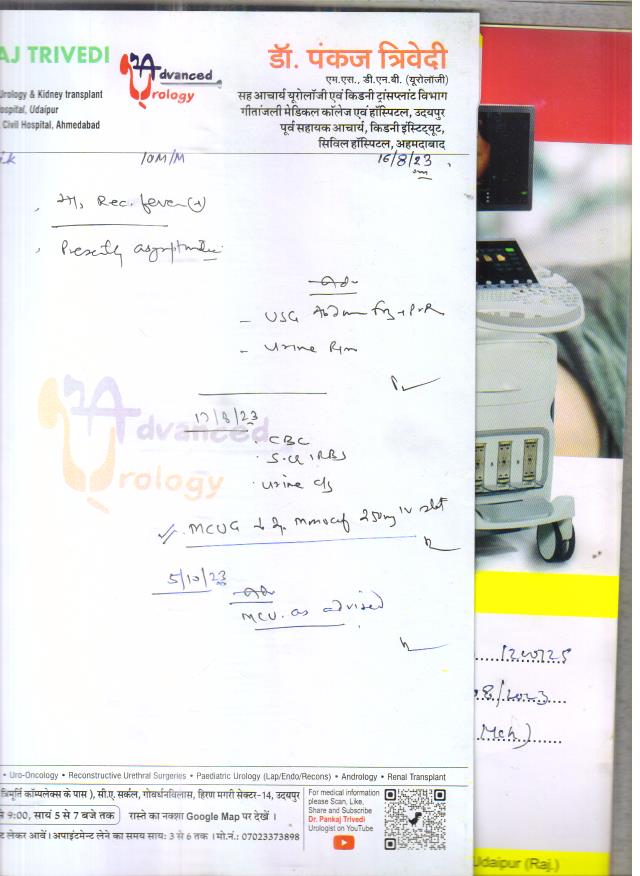 AJ TRIVEDI
Advanced
Urology
Urology & Kidney transplant
ospital, Udaipur
Civil Hospital, Ahmedabad
डॉ. पंकज त्रिवेदी
एम.एस., डी.एन.बी. (यूरोलॉजी)
सह आचार्य यूरोलॉजी एवं किडनी ट्रांसप्लांट विभाग
गीतांजली मेडिकल कॉलेज एवं हॉस्पिटल, उदयपुर
पूर्व सहायक आचार्य, किडनी इंस्टिट्यूट,
सिविल हॉस्पिटल, अहमदाबाद
10M/M 16/8/23
Rec. fever (+)
Presently asymptomatic
Adv
- USG Abdomen + PVR
- Urine R/m
17/8/23
CBC
S. Cr, RBS
Urine c/s
Advanced
Urology
MCUG 250mg IV stat
5/10/23
Adv
MCU. as advised
120125
08/2023
Mch)
• Uro-Oncology • Reconstructive Urethral Surgeries • Paediatric Urology (Lap/Endo/Recons) • Andrology • Renal Transplant
त्रिमूर्ति कॉम्पलेक्स के पास ), सी.ए. सर्कल, गोवर्धनविलास, हिरण मगरी सेक्टर-14, उदयपुर
9:00, सायं 5 से 7 बजे तक रास्ते का नक्शा Google Map पर देखें ।
लेकर आवें । अपाइंटमेन्ट लेने का समय सायः 3 से 6 तक । मो.नं.: 07023373898
For medical information
please Scan, Like,
Share and Subscribe
Dr. Pankaj Trivedi
Urologist on YouTube
Udaipur (Raj.)